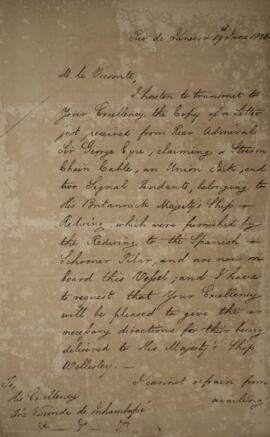 Rio de Janeiro 19th June 1826
M. le Vicomte,
I hasten to transmit to
Your Excellency the Copy of a Letter
just received from Rear Admiral
Sir George Eyre, claiming a Stream
Chain Cable, an Union Jack, and
two Signal Pendants, belonging to
His Britannick Majesty's Ship
Redwing, which were furnished by
the Redwing to the Spanish
Schooner Pilar, and are now on
board this Vessel; and I have
to request that Your Excellency
will be pleased to give the
necessary directions for their being
delivered to His Majesty's Ship
Wellesley.
I cannot refrain from
availing
To,
His Excellency
The Visconde de Inhambupe